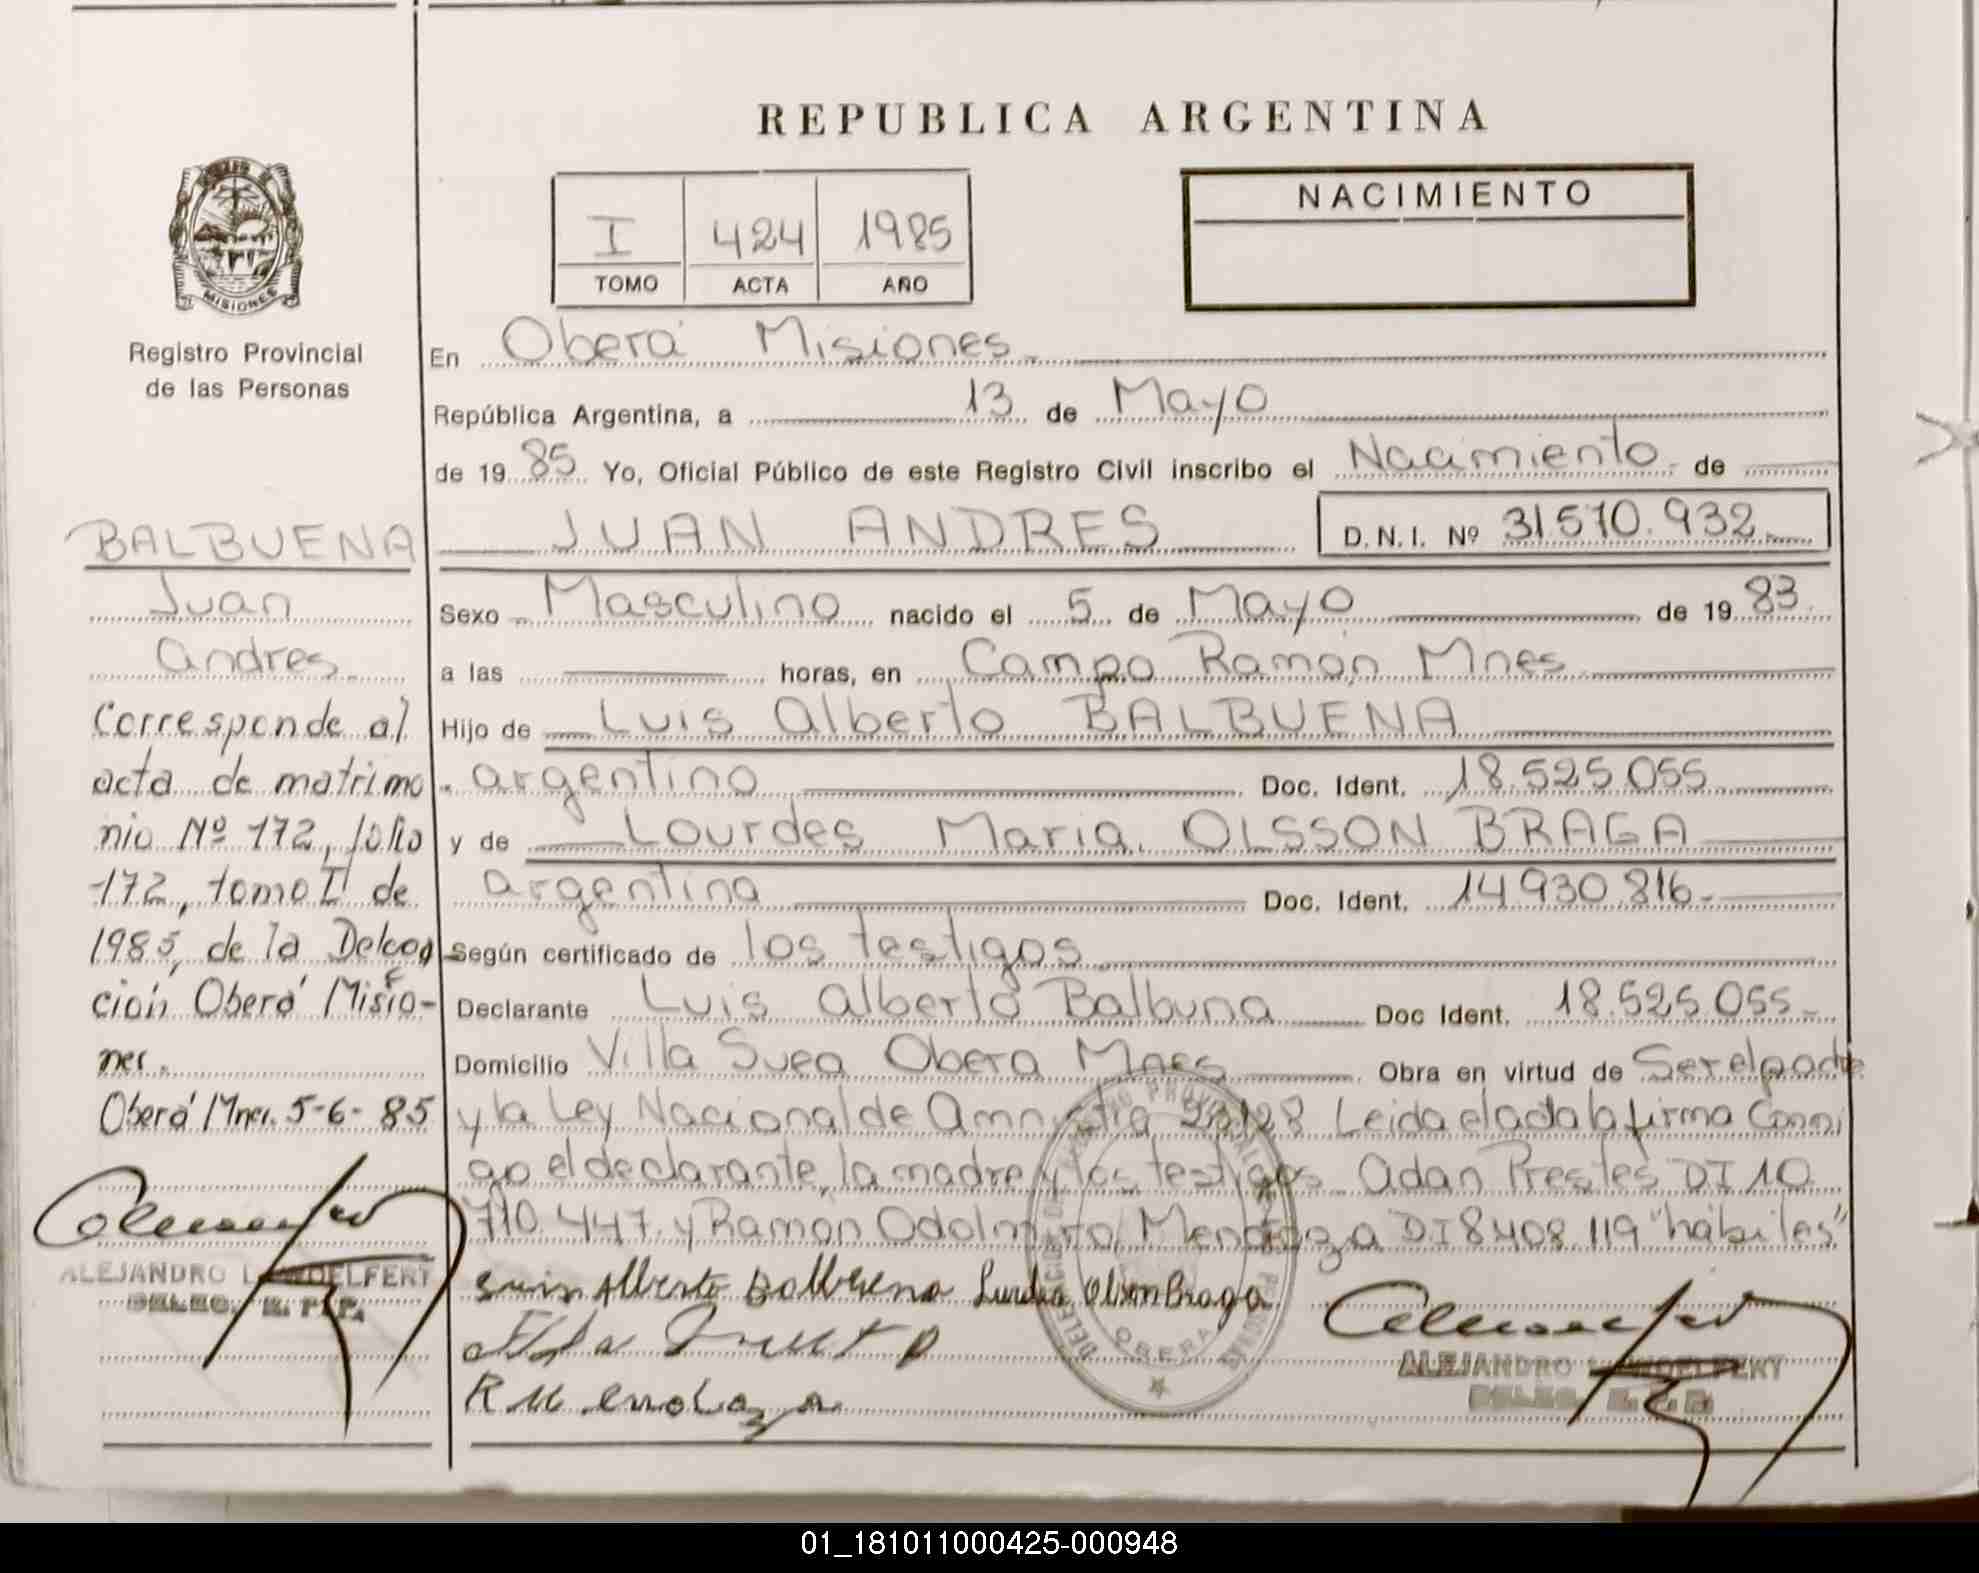 REPUBLICA ARGENTINA
MISIONES
Registro Provincial
de las Personas
I 424 1985
TOMO ACTA AÑO
NACIMIENTO
En Oberá Misiones
República Argentina, a 13 de Mayo
de 1985 Yo, Oficial Público de este Registro Civil inscribo el Nacimiento de
JUAN ANDRES D.N.I. Nº 31570.932
Sexo Masculino nacido el 5 de Mayo de 1983
a las horas, en Campo Ramón Mnes
Hijo de Luis Alberto BALBUENA
argentino Doc. Ident. 18.525.055
y de Lourdes Maria OLSSON BRAGA
argentina Doc. Ident. 14930.816-
Según certificado de los testigos
Declarante Luis Alberto Balbuna Doc Ident. 18.525.055-
Domicilio Villa Svea Obera Mnes Obra en virtud de Ser el padre
y la Ley Nacional de Leida el acta la firma Conmi
go el declarante, la madre y los testigos Adan Prestes DI 10
710.447. y Ramón Mendoza DI 8408.119 "hábiles"
Luis Alberto Balbuena Olson Braga
R Mendoza
ALEJANDRO
DELEG. R. P. P.
BALBUENA
Juan
Andres
Corresponde al
acta de matrimo
nio Nº 172, folio
172, tomo I de
1985, de la Delega
ción Oberá Misio-
nes.
Oberá Mnes. 5-6-85
ALEJANDRO
DELEG. R. P. P.
OBERA
01_181011000425-000948